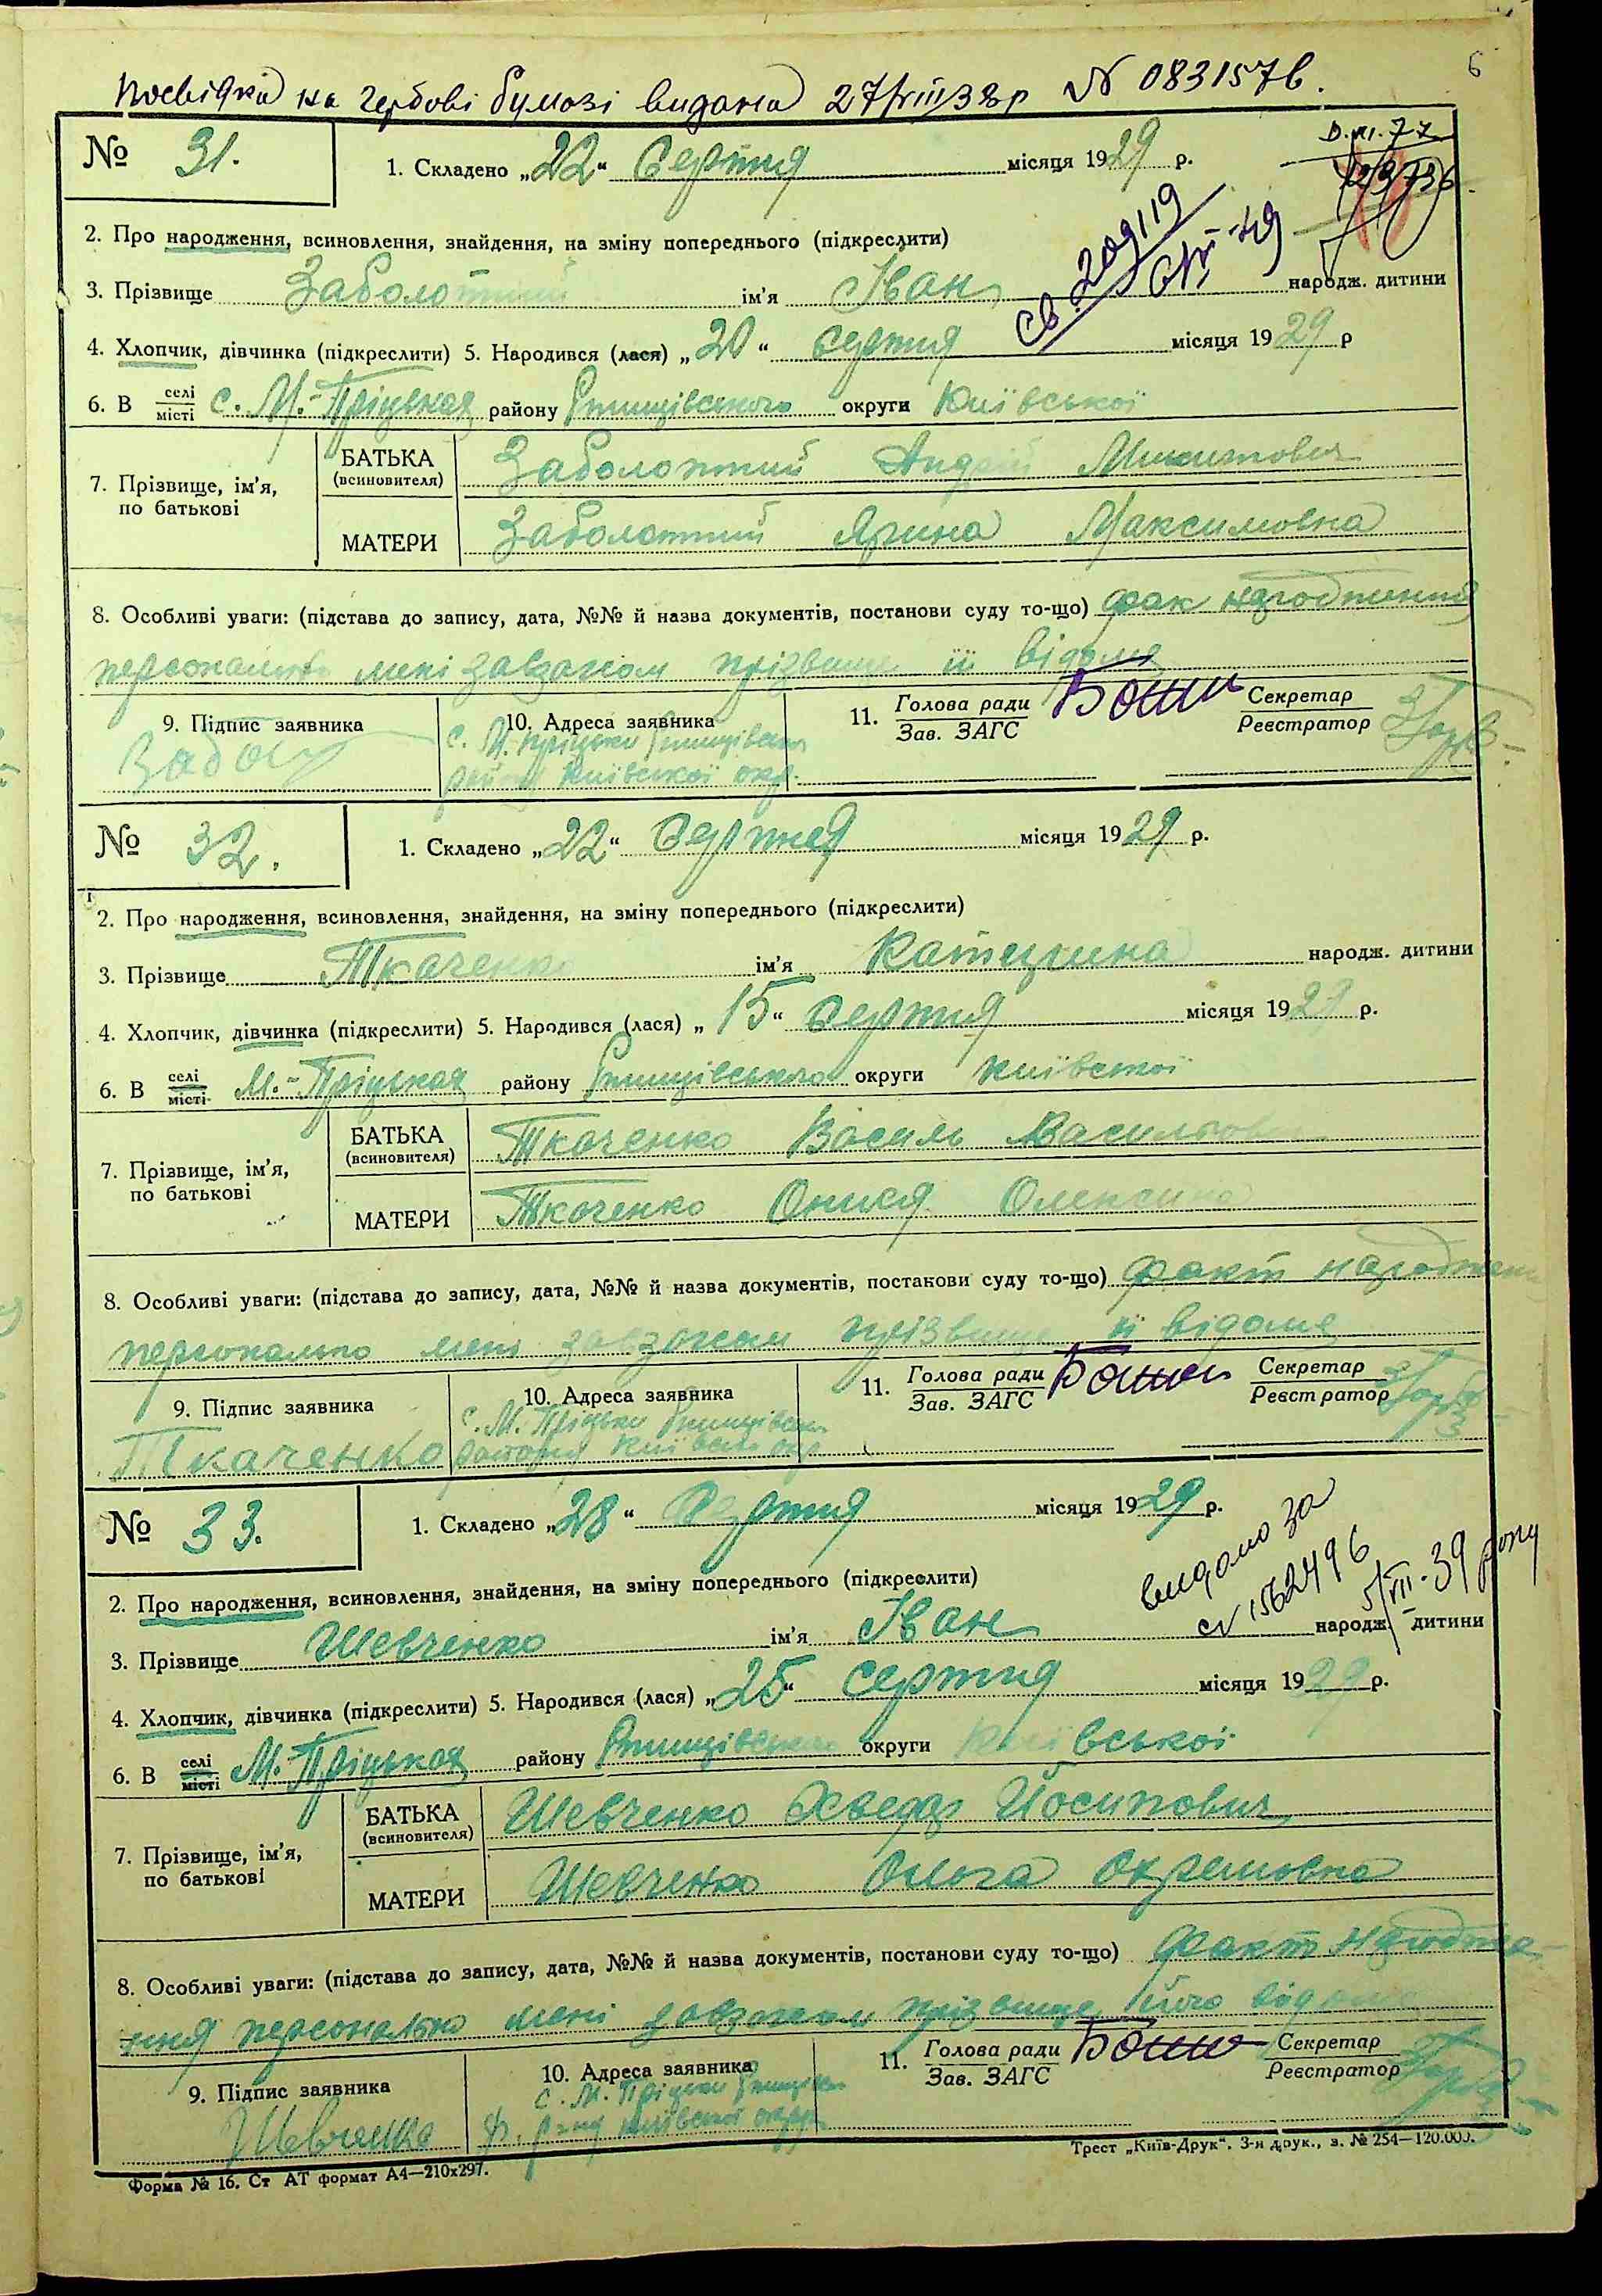 6
Посвідка на гербові бумозі видана 27/VIII 38р № 083157б.
№ 31. 1. Складено „22“ Серпня місяця 1929 р.
2. Про народження, всиновлення, знайдення, на зміну попереднього (підкреслити)
св. 209119
3. Прізвище Заболотний ім'я Іван народж. дитини
4. Хлопчик, дівчинка (підкреслити) 5. Народився (лася) „20“ серпня місяця 1929 р
6. В селі місті с. М.-Пріцьках району Ржищівського округи Київської
7. Прізвище, ім'я, по батькові
БАТЬКА (всиновителя) Заболотний Андрій Микитович
МАТЕРИ Заболотний Ярина Максимовна
8. Особливі уваги: (підстава до запису, дата, №№ й назва документів, постанови суду то-що) фак народження
персонально мені завзагсом прізвище її відоме
9. Підпис заявника
10. Адреса заявника
с. М. Пріцьки Ржищівськ
району Київської окр.
11. Голова ради Зав. ЗАГС
Секретар Реєстратор
№ 32. 1. Складено „22“ Серпня місяця 1929 р.
2. Про народження, всиновлення, знайдення, на зміну попереднього (підкреслити)
3. Прізвище Ткаченко ім'я Катерина народж. дитини
4. Хлопчик, дівчинка (підкреслити) 5. Народився (лася) „15“ Серпня місяця 1929 р.
6. В селі місті М.-Пріцьках району Ржищівського округи Київської
7. Прізвище, ім'я, по батькові
БАТЬКА (всиновителя) Ткаченко Василь Васильов
МАТЕРИ Ткаченко Онися Олексіивна
8. Особливі уваги: (підстава до запису, дата, №№ й назва документів, постанови суду то-що) факт народжен
персонально мені завзагсом прізвище її відоме
9. Підпис заявника
Ткаченко
10. Адреса заявника
с. М. Пріцьки Ржищівськ
району Київськ окр
11. Голова ради Зав. ЗАГС
Секретар Реєстратор
№ 33. 1. Складено „28“ Серпня місяця 1929 р.
видано за
№ 1562496 5/VII-39 року
2. Про народження, всиновлення, знайдення, на зміну попереднього (підкреслити)
3. Прізвище Шевченко ім'я Іван народж. дитини
4. Хлопчик, дівчинка (підкреслити) 5. Народився (лася) „25“ Серпня місяця 1929 р.
6. В селі місті М.-Пріцьках району Ржищівського округи Київської
7. Прізвище, ім'я, по батькові
БАТЬКА (всиновителя) Шевченко Хведор Йосипович
МАТЕРИ Шевченко Ольга Охремовна
8. Особливі уваги: (підстава до запису, дата, №№ й назва документів, постанови суду то-що) факт народже-
ння персонально мені завзагсом прізвище його відоме
9. Підпис заявника
Шевченко
10. Адреса заявника
с. М. Пріцьки Ржищівськ
Київської округи
11. Голова ради Зав. ЗАГС
Секретар Реєстратор
Форма № 16. Ст АТ формат А4—210х297.
Трест „Київ-Друк“. 3-я друк., з. № 254—120.000.